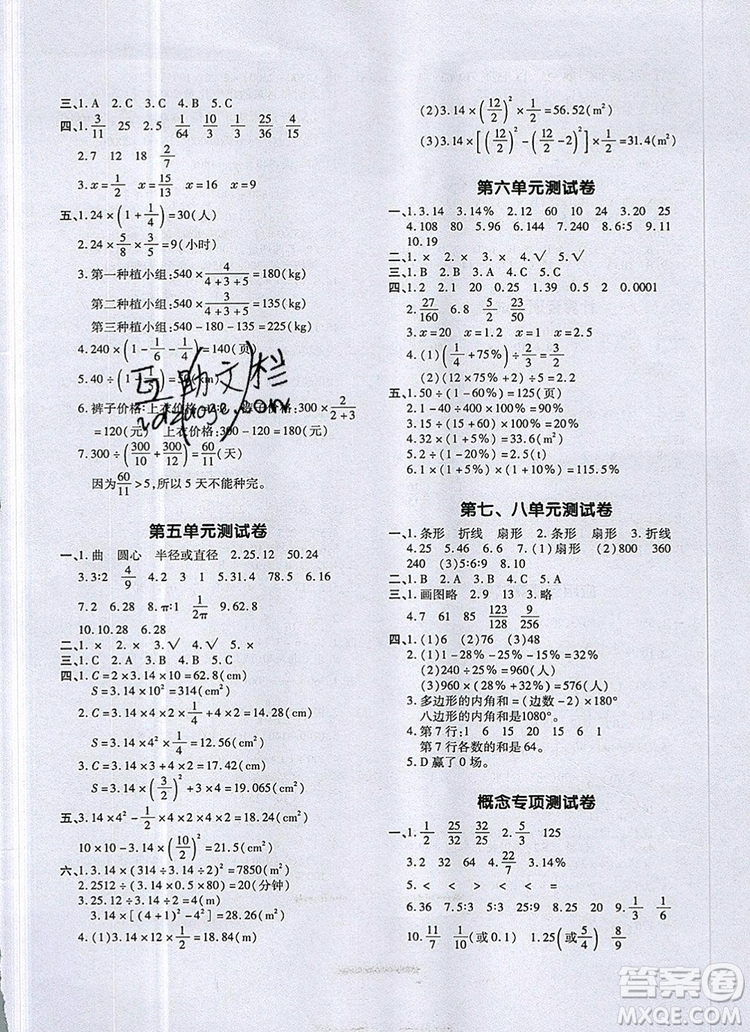 三、1. A 2. C 3. C 4. B 5. C
四、1. 3/11 25 2.5 1/64 10/3 1/250 36 4/15
2.7 12 2/7
3. x=1/2 x=15 x=16 x=9
五、1.24×(1+1/4)=30(人)
2.24×5/8×3/5=9(小时)
3. 第一种植小组:540×4/(4+3+5)=180(kg)
第二种植小组:540×3/(4+3+5)=135(kg)
第三种植小组:540-180-135=225(kg)
4.240×(1-1/6-1/4)=140(页)
5.40÷(1-
6. 裤子价格:上衣价格=2:3 裤子价格:300×2/(2+3)
=120(元) 上衣价格:
7.300÷(300/10+300/12)=60/11(天)
因为60/11>5,所以 5 天不能种完。
互助文栏
第五单元测试卷
一、1. 曲 圆心 半径或直径 2.25.12 50.24
3.3:2 4/9 4.2 3 1 5.18.84 6.113.04
7.2 6.28 8. π:1 1/2π 9.62.8
10.10.28 6.28
二、1. × 2. × 3. √ 4. √ 5. ×
三、1. C 2. A 3. B 4. B 5. C
四、1. C=2×3.14×10=62.8(cm)
S=3.14×10²=314(cm²)
2. C=3.14×4×2×1/4+4×2=14.28(cm)
S=3.14×4²×1/4=12.56(cm²)
3.22.84×(3/2)²+3×4=19.065(cm²)
五、3.14×4²-1/2×4×4×2=34.24(cm²)
10×10-3.14×(10/2)²×1/2=60.75(cm²)
六、1.3.14×(314÷3.14÷2)²=7850(m²)
2.2512÷(3.14×0.4×100)=20(分钟)
3.25.12÷3.14÷2=4(m)
3.14×[(4+1)²-4²]=28.26(m²)
4.(1)3.14×12×1/2=18.84(m)
(2)3.14×(12/2)²×1/2=56.52(m²)
(3)3.14×[(12/2)²-(12/2-2)²]×1/2=31.4(m²)
第六单元测试卷
一、1.3.14 3.14% 2.12 60 120 3.20 25
4.108 80 5.96 6.144 7.240 8.6:5 9.110
10.19
二、1. × 2. × 3. × 4. √ 5. √
三、1. C 2. C 3. B 4. B 5. C
四、1.2 0.1 1.39 0.52 9 1.5 2 0.0001
2. 27/160 6.8 2/5 23/50
3. x=20 x=1.2 x=1 x=1.25
4.(1)(1+75%)÷3/5
(2)2/5÷(1/4+75%)
五、1.150÷60%×(1-50%)=125(页)
2.1-40÷400=90%
3.15×(1+60%)÷60%=40(个)
4.32÷(1-1/5)×(1-16%)=33.6(m²)
5.2÷(1-20%)=2.5(t)
6.1×(1+5%)×(1+10%)÷1=115.5%
第七、八单元测试卷
一、1. 条形 折线 扇形 2. 条形 扇形 3. 折线
4.25 5.96 6.12 7.(1)扇形 (2)800 360
240 (3)62.5 8.10
二、1. B 2. D 3. A 4. C
三、1. 画图略 2.9 13 3. 略
4.7 61 85 123/128 9/256
四、1.(1)6 (2)76 (3)48
2.(1)1-28%-25%-15%=32%
(2)240÷25%=960(人)
(3)960×(28%+32%)=576(人)
3. 多边形的内角和=(边数-2)×180°
八边形的内角和是1080°。
4. 第 7 行:1 6 15 20 15 6 1
第 7 行各数的和是 64。
5. D 赢了 0 场。
概念专项测试卷
一、1. 1/2 25/32 32/25 2. 5/3 125
3.2 32 64 4. 22/7
5. < < > = <
6.36 7.5:3 5:9 8.25 20 9. 1/3 1/3
10. 11/7 1/10(或 0.1) 1.25(或5/4) 8/9
答案圈
MXQE.COM